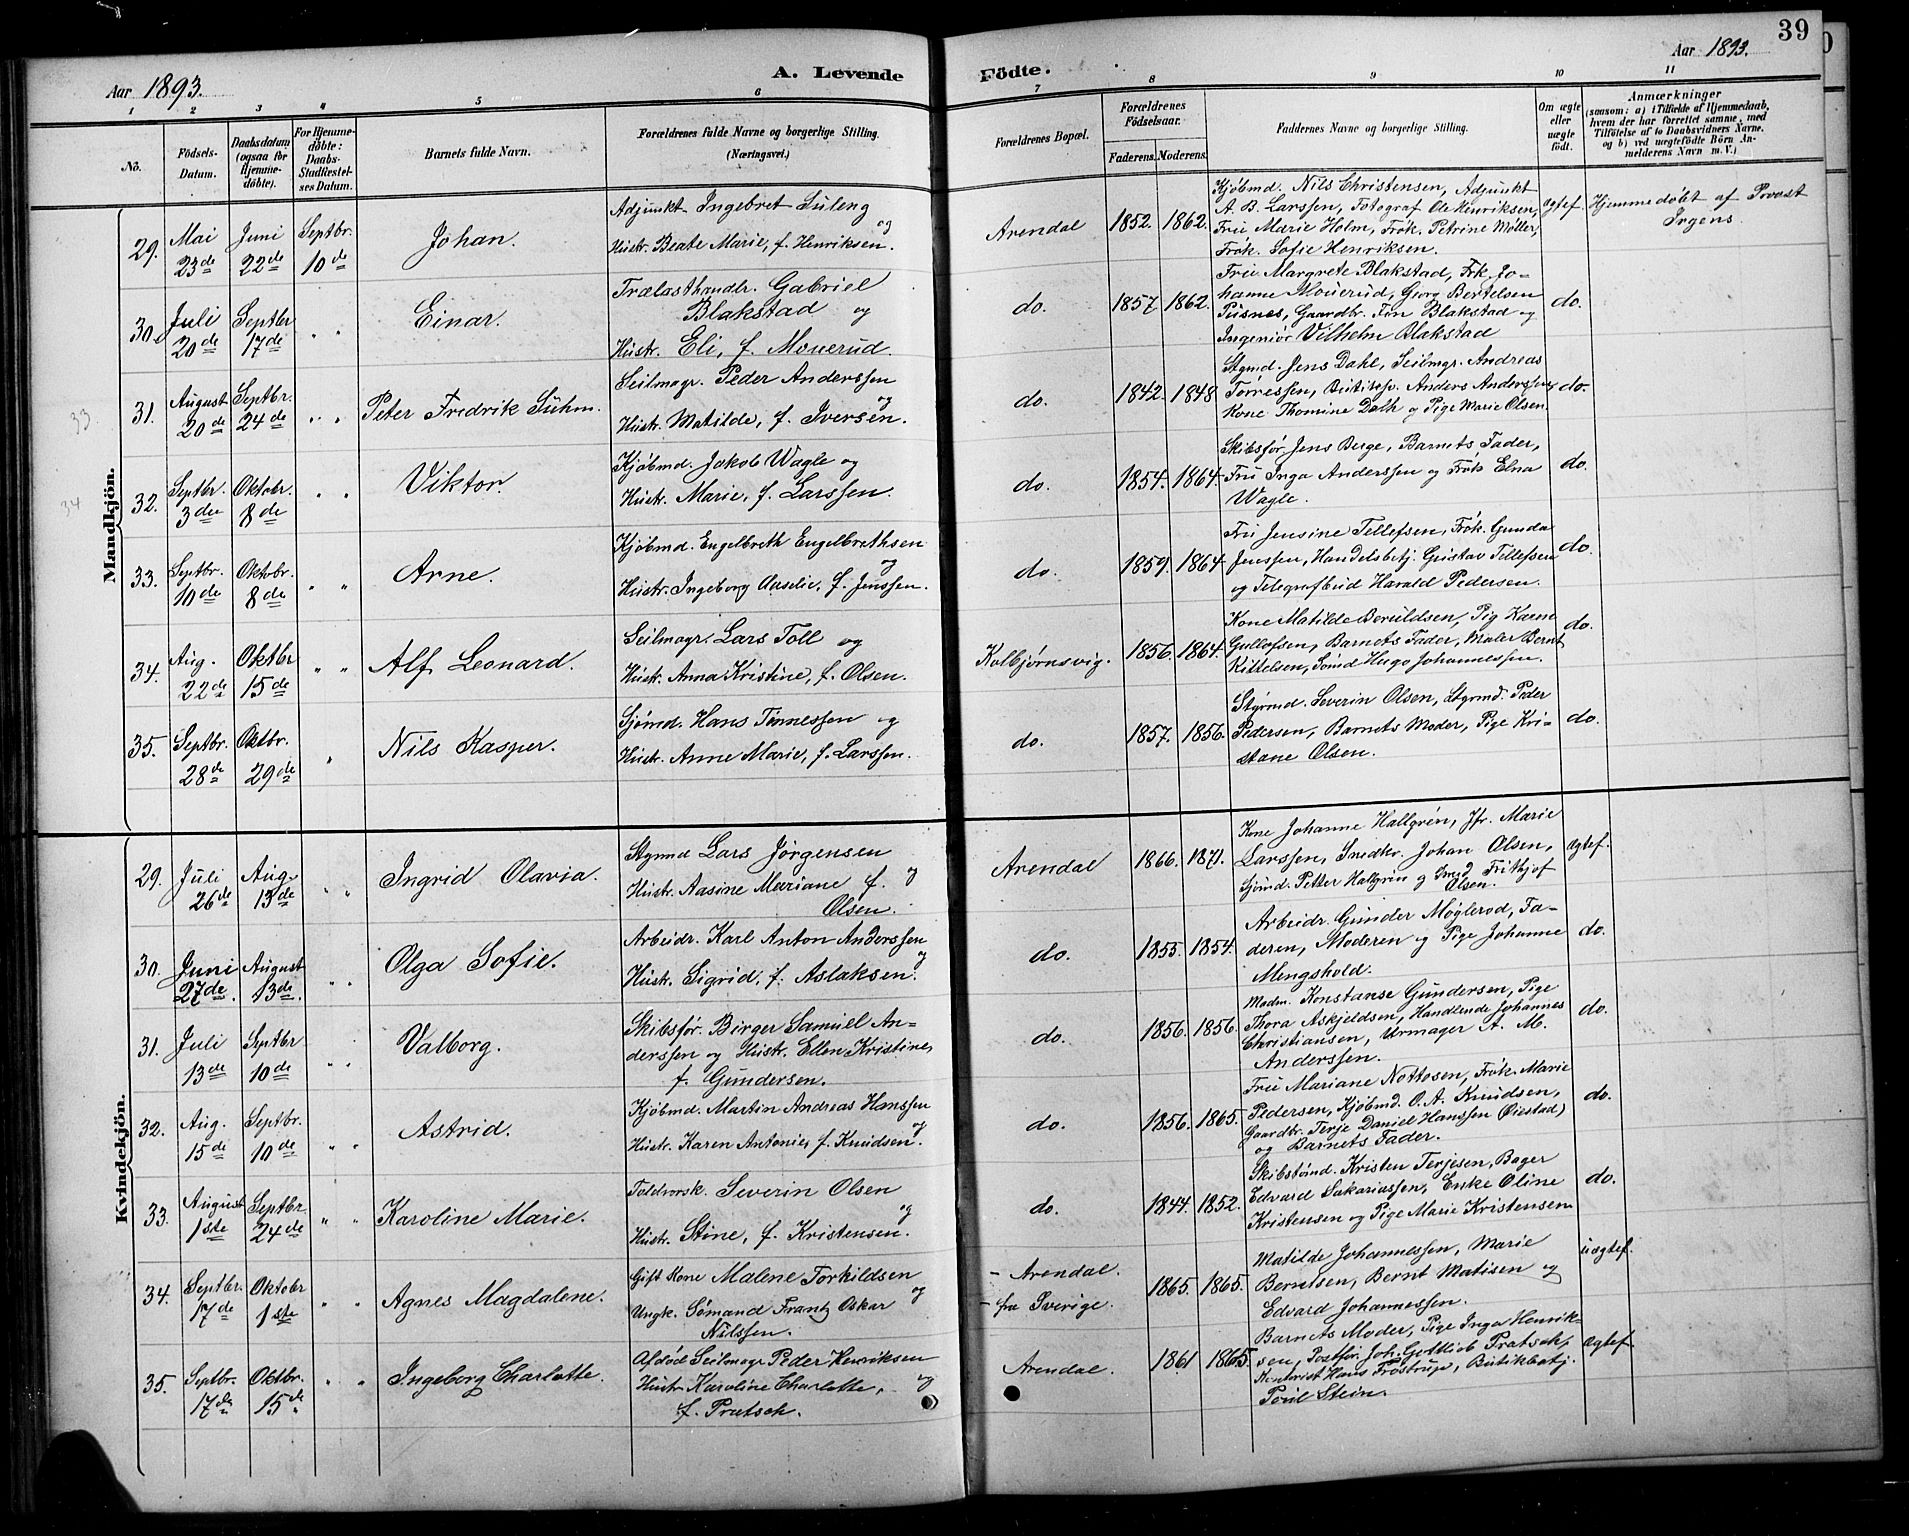 39
Aar 1893. A. Levende Födte. Aar 1893.
1 2 3 4 5 6 7 8 9 10 11
No.
Födsels-
Datum.
Daabsdatum
(ogsaa for
Hjemme-
döbte).
For Hjemme-
döbte:
Daabs-
Stadfæstel-
ses Datum.
Barnets fulde Navn.
Forældrenes fulde Navne og borgerlige Stilling.
(Næringsvei.)
Forældrenes Bopæl.
Forældrenes
Födselsaar.
Faderens. Moderens.
Faddernes Navne og borgerlige Stilling.
Om ægte
eller
uægte
födt.
Anmærkninger
(saasom: a) i Tilfælde af Hjemmedaab,
hvem der har forrettet samme, med
Tilföielse af to Daabsvidners Navne.
og b) ved uægtefödte Börn An-
melderens Navn m. V.)
Mandkjön.
29. Mai 23de Juni 22de Septbr. 10de Johan.
Adjunkt Ingebret Suleng og
Hustr. Beate Marie, f. Henriksen.
Arendal 1852. 1862.
Kjøbmd. Nils Christensen, Adjunkt
A. B. Larssen, Fotograf Ole Henriksen,
Frue Marie Holm, Frøk. Petrine Møller,
Frøk. Sofie Henriksen.
Ægtef.
Hjemmedøbt af Provst
Irgens.
30. Juli 20de Septbr 17de " " Einar.
Trælasthandlr. Gabriel
Blakstad og
Hustr. Eli, f. Mouerud.
do. 1857. 1862.
Frue Margrete Blakstad, Frk. Jo-
hanne Mouerud, Georg Bertelsen
Pusnes, Gaardbr. Tøn Blakstad og
Ingeniør Vilhelm Blakstad
do.
33.
31. August 20de Septbr. 24de " " Peter Fredrik Suhm.
Seilmagr. Peder Anderssen og
Hustr. Matilde, f. Iversen.
do. 1842. 1848
Stymd. Jens Dahl, Seilmgr. Andreas
Torressen, Anders Anderssen,
Kone Thomine Dath og Pige Marie Olsen.
do.
34
32. Septbr. 3die Oktobr. 8de " " Viktor.
Kjøbmd. Jakob Wagle og
Hustr. Marie, f. Larssen.
do. 1854. 1864.
Skibsfør Jens Berge, Barnets Fader,
Fru Inga Anderssen og Frøk Elna
Wagle.
do.
33. Septbr. 10de Oktobr. 8de " " Arne.
Kjøbmd. Engelbreth Engelbrethsen og
Hustr. Ingeborg Aaselie, f. Jenssen.
do. 1859. 1864
Fru Jensine Tellefsen, Frøk. Gunda
Jenssen, Handelsbetj. Gustav Tellefsen
og Telegrafbud Harald Pedersen.
do.
34. Aug. 22de Oktbr 15de " " Alf Leonard.
Seilmagr. Lars Toll og
Hustr. Anna Kristine, f. Olsen.
Kolbjørnsvig. 1856. 1864.
Kone Matilde Beruldsen, Pig Karen
Gullofsen, Barnets Fader, Maler Bernt
Kittelsen, Sømd Hugo Johannessen.
do.
35. Septbr. 28de Oktbr. 29de " Nils Kasper.
Sjømd. Hans Tønnessen og
Hustr. Anne Marie, f. Larssen.
do. 1857. 1856.
Styrmd. Severin Olsen, Stgrmd. Peder
Pedersen, Barnets Moder, Pige Kri-
stane Olsen.
do.
Kvindekjön.
29. Juli 26de Aug. 13de " " Ingrid Olavia.
Stymd Lars Jørgensen og
Hustr. Aasine Mariane f.
Olsen.
Arendal 1866. 1871.
Kone Johanne Hallgrén, Jfr. Marie
Larssen, Snedkr. Johan Olsen,
Sjømd. Petter Hallgrin og Smed Frithjof
Olsen.
Ægtef.
30. Juni 27de. August 13de. " " Olga Sofie.
Arbeidr. Karl Anton Anderssen og
Hustr. Sigrid, f. Aslaksen.
do. 1855. 1854.
Arbeidr. Gunder Møglerod, Fa-
deren, Moderen og Pige Johanne
Mengshold.
do.
31. Juli 13de Septbr 10de " " Valborg.
Skibsfør. Birger Samuel An-
derssen og Hustr. Ellen Kristine,
f. Gundersen.
do. 1856. 1856.
Madm. Konstanse Gundersen, Pige
Thora Askjeldsen, Handlende Johannes
Christiansen, Urmager A. M.
Anderssen.
do.
32. Aug. 15de Septbr. 10de " " Astrid.
Kjøbmd. Martin Andreas Hanssen og
Hustr. Karen Antonie, f. Knudsen.
do. 1856. 1865.
Frue Mariane Nottosen, Frøk. Marie
Pedersen, Kjøbmd. O. A. Knudsen,
Gaardbr. Terje Daniel Hanssen (Øiestad)
og Barnets Fader.
do.
33. August 1ste Septbr. 24de " " Karoline Marie.
Toldvorsk. Severin Olsen og
Hustr. Stine, f. Kristensen.
do. 1844. 1852.
Skibstømd. Kristen Terjesen, Bager
Edvard Sakariassen, Enke Oline
Kristensen og Pige Marie Kristensen
do.
34. Septbr. 17de Oktober 1ste " " Agnes Magdalene.
Gift Kone Malene Torkildsen og
Ungk. Sømand Frantz Oskar
Nilssen.
- Arendal.
- fra Sverige.
1865. 1865.
Matilde Johannessen, Marie
Berntsen, Bernt Matisen og
Edvard Johannessen.
uægtef.
35. Septbr. 17de Oktbr. 15de " " Ingeborg Charlotte.
Afdød Seilmagr Peder Henriksen og
Hustr. Karoline Charlotte,
f. Pratsch.
Arendal. 1861 1865.
Barnets Moder, Pige Inga Henrik-
sen, Postfør. Joh. Gottlieb Pratsch,
Kontorist Hans Frostrup, Butikbetj.
Poul Stein.
Ægtef.